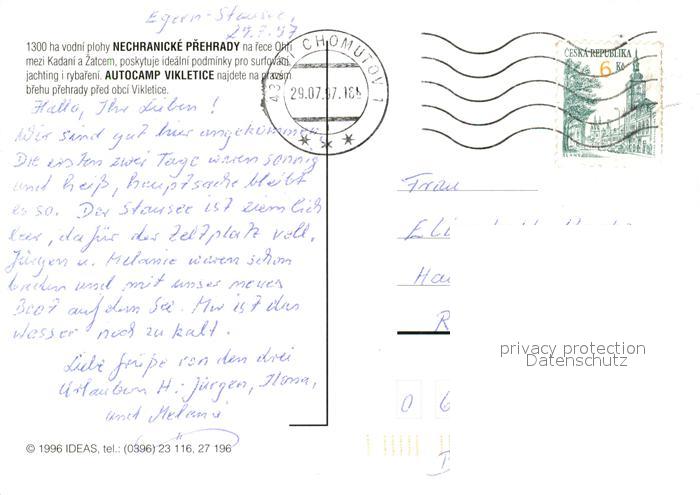 Egern-Stausee,
29.7.97
1300 ha vodní plohy NECHRANICKÉ PŘEHRADY na řece Ohři
mezi Kadaní a Žatcem, poskytuje ideální podmínky pro surfování,
jachting i rybaření. AUTOCAMP VIKLETICE najdete na pravém
břehu přehrady před obcí Vikletice.
CHOMUTOV 1
29.07.97.18
ČESKÁ REPUBLIKA
6 Kč
Hallo, Ihr Lieben!
Wir sind gut hier angekommen.
Die ersten zwei Tage waren sonnig
und heiß, hauptsache bleibt
es so. Der Stausee ist ziemlich
leer, dafür der Zeltplatz voll.
Jürgen u. Melanie waren schon
baden und mit unser neues
Boot auf dem See. Mir ist das
Wasser noch zu kalt.
Liebe Grüße von den drei
Urlaubern H.-Jürgen, Ilona,
und Melanie
Frau
Eli
Ha
R
privacy protection
Datenschutz
0 6
© 1996 IDEAS, tel.: (0396) 23 116, 27 196